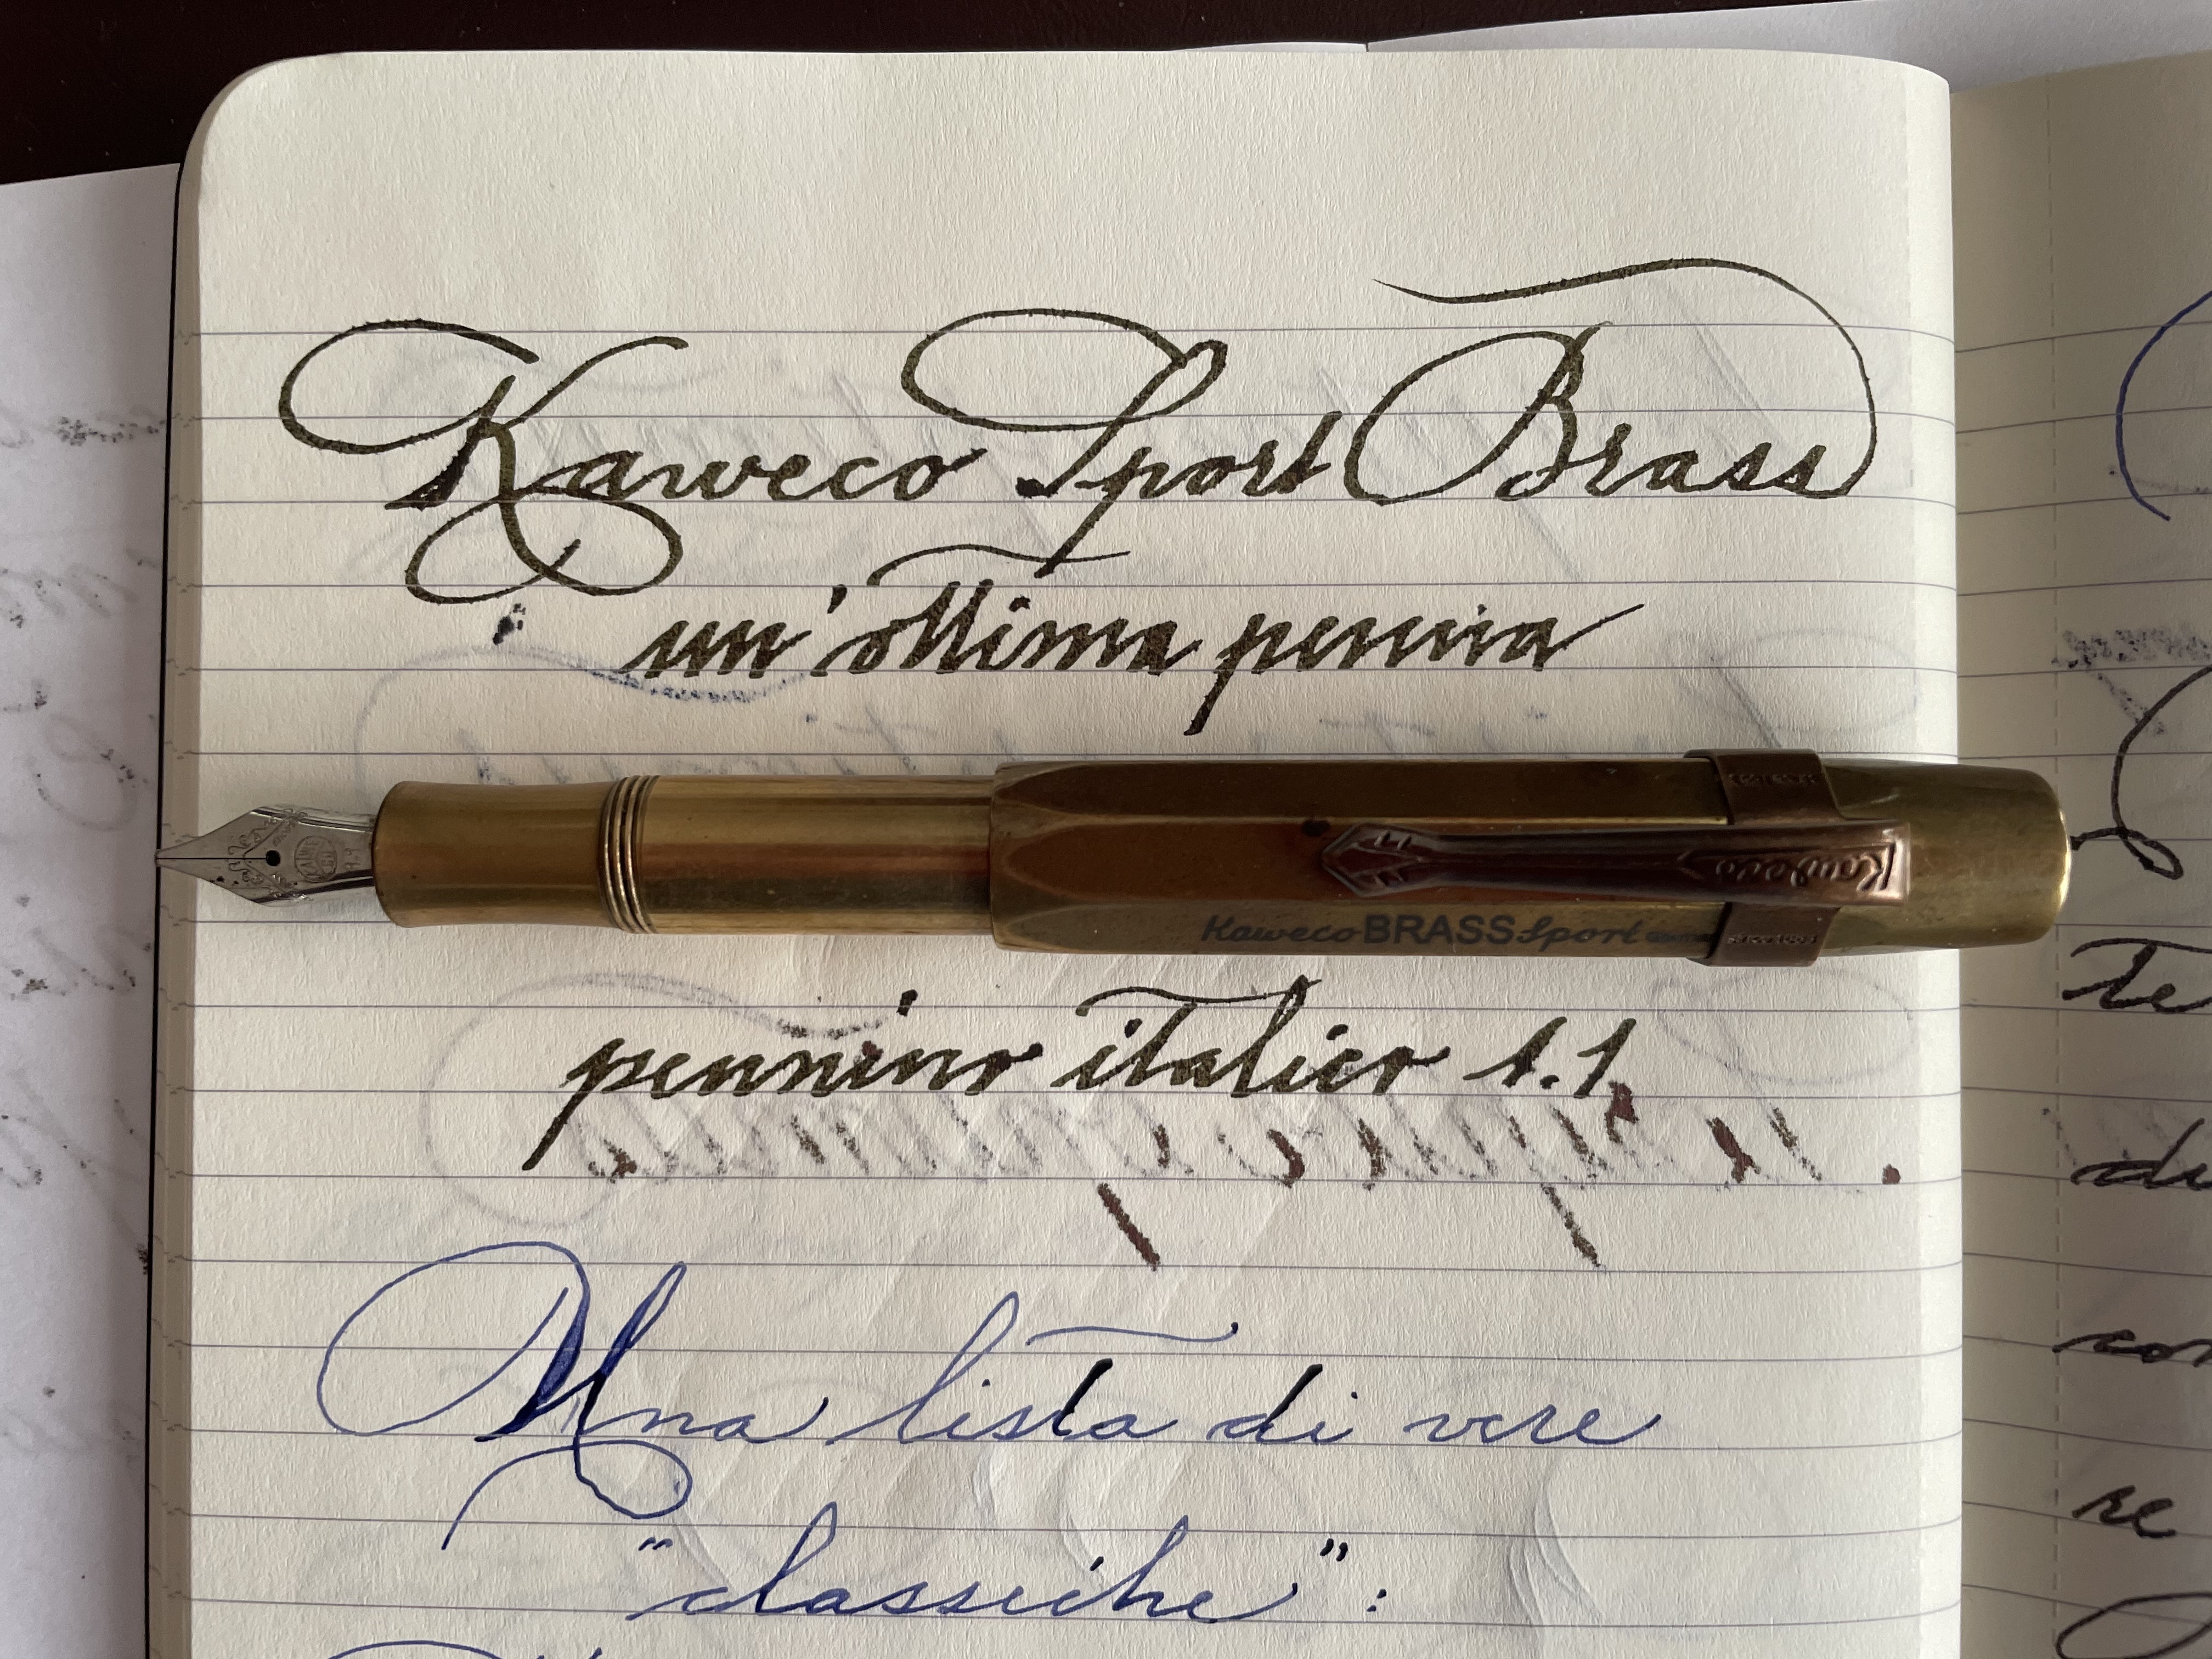 Kaweco Sport Brass
un'ottima penna
Kaweco
Kaweco BRASS Sport
pennino italico 1.1
Una lista di vere
"classiche":
te
di
con
re